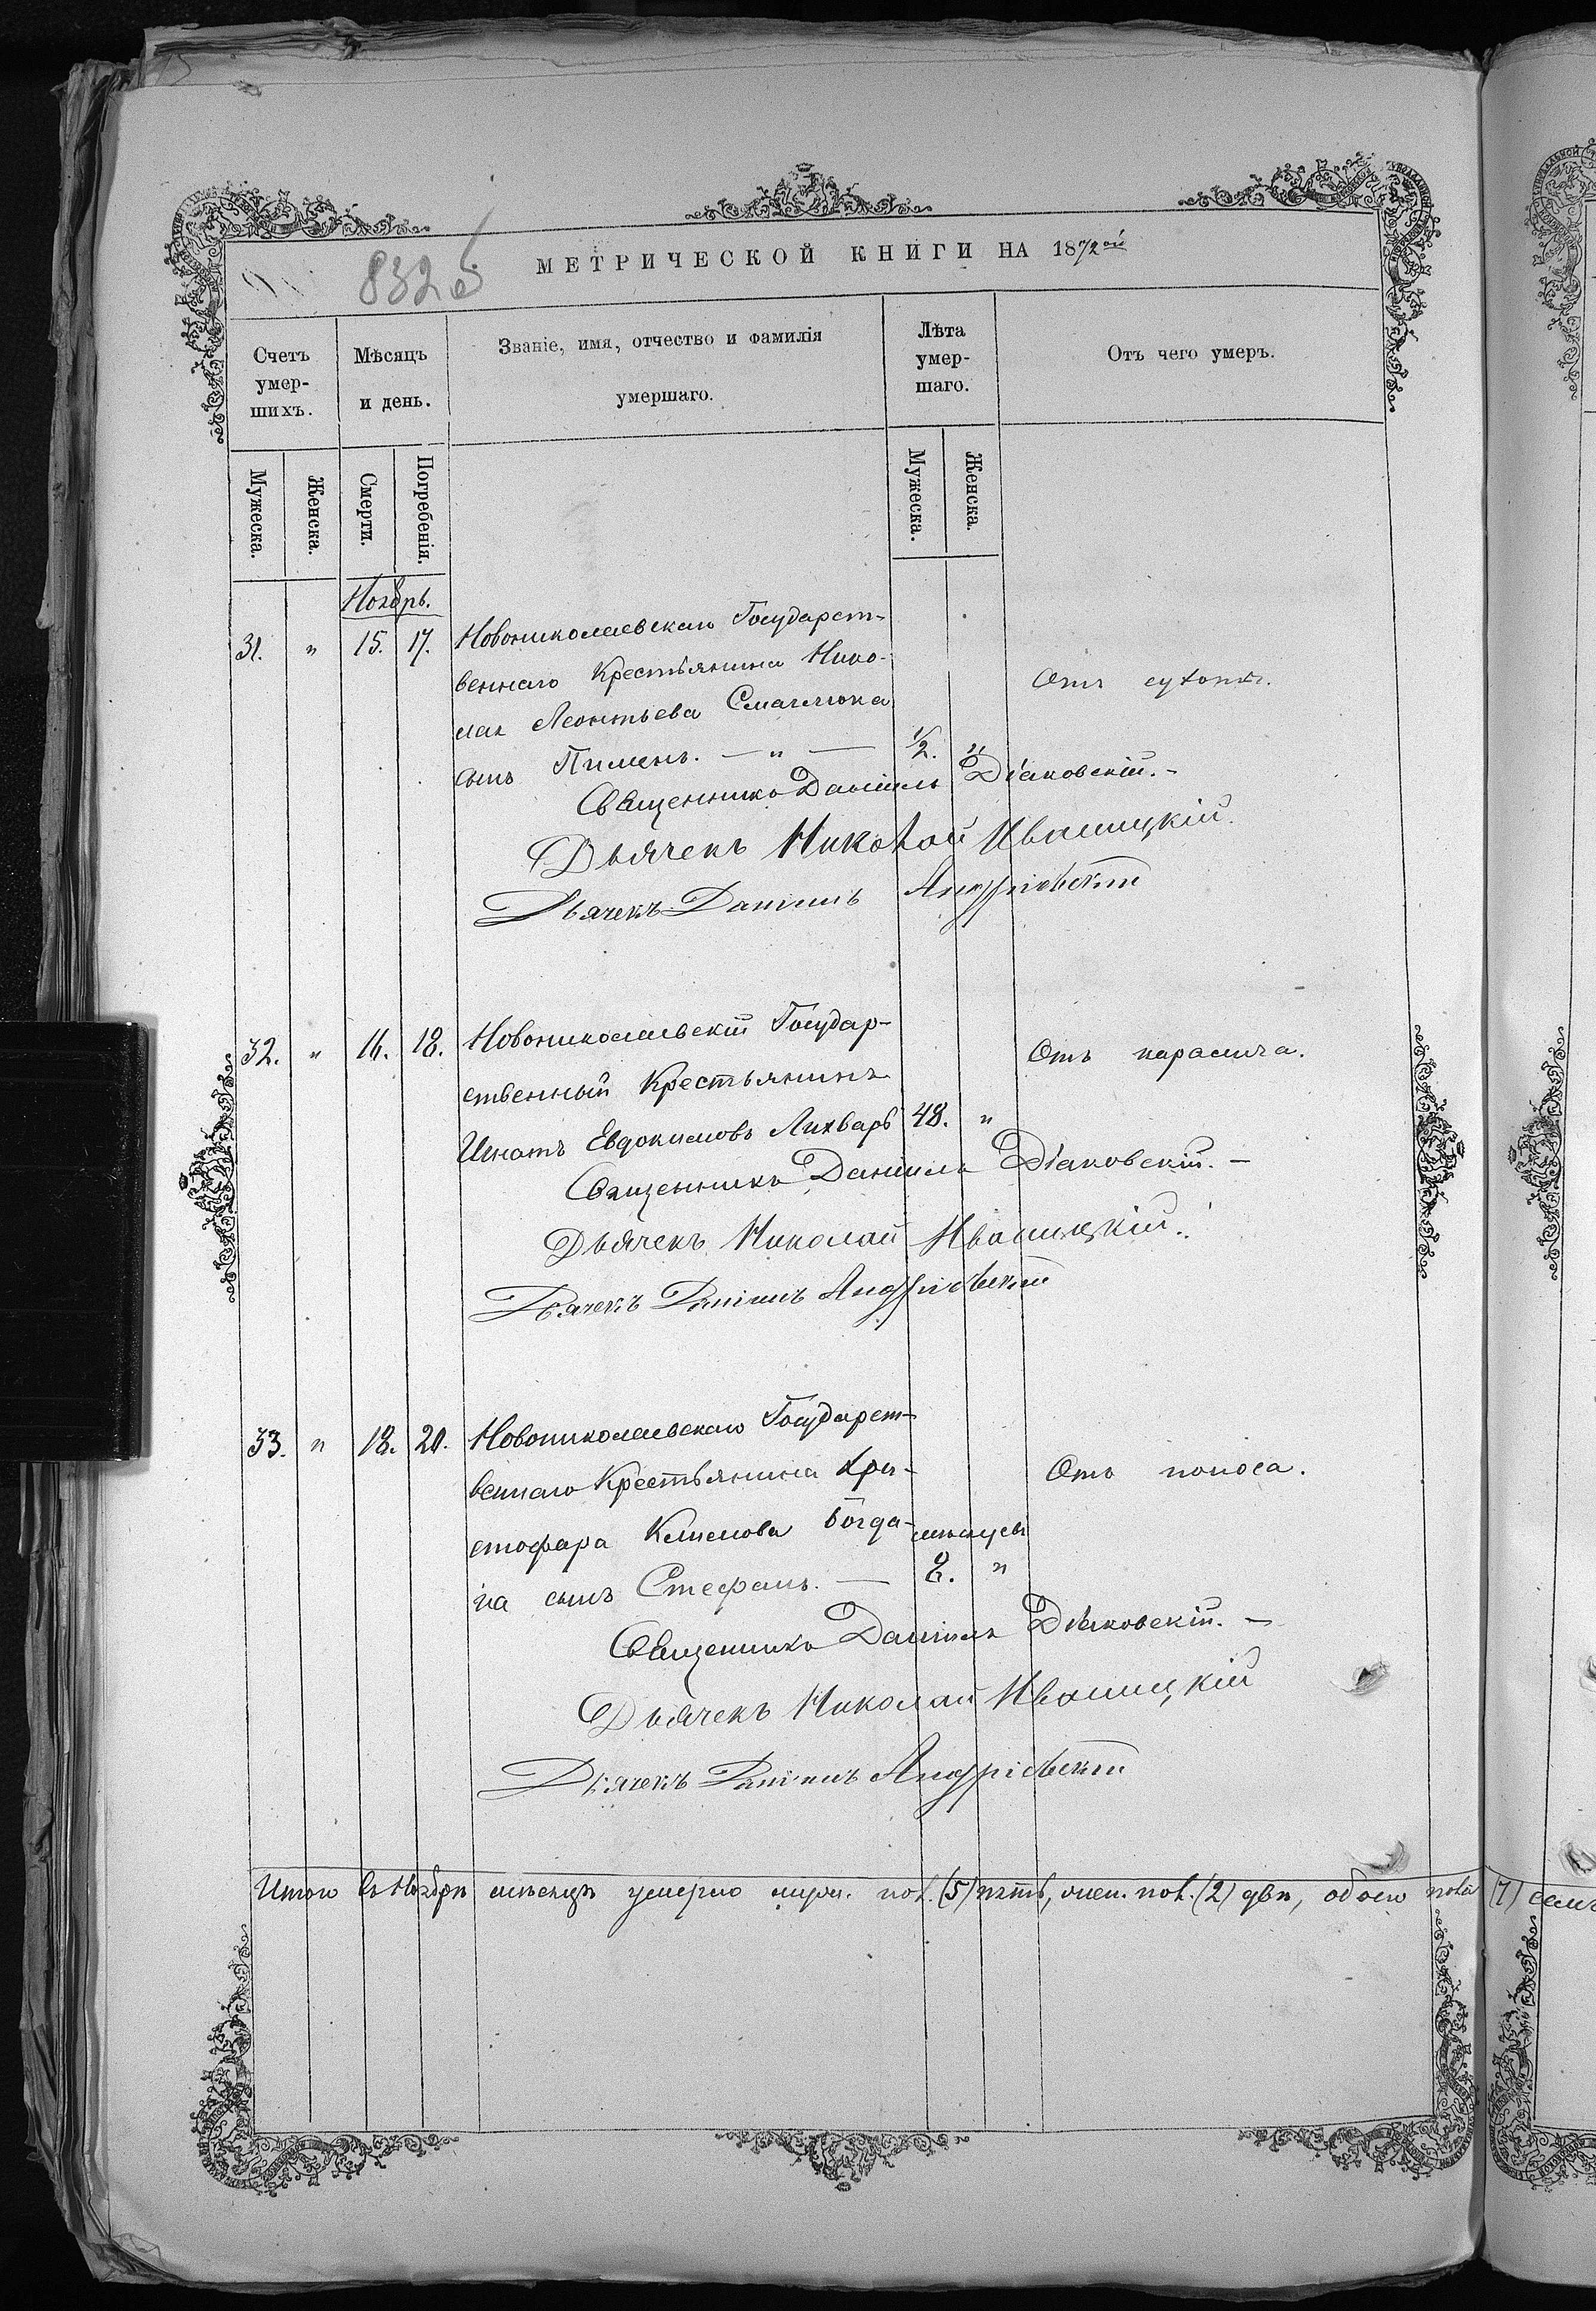 832 б
МЕТРИЧЕСКОЙ КНИГИ НА 1872ой
Счетъ умер-шихъ.
Мѣсяцъ и день.
Званіе, имя, отчество и фамилія умершаго.
Лѣта умер-шаго.
Отъ чего умеръ.
Мужеска.
Женска.
Смерти.
Погребенія.
Мужеска.
Женска.
Ноябрь.
31. " 15. 17. Новониколаевскаго Государст-
веннаго Крестьянина Нико-
лая Леонтьева Смаглюка
Отъ сухотъ.
сынъ Пименъ. — " — 1/2. "
Священникъ Даніилъ Діаковскій. -
Дьячекъ Николай Ивашицкій.
Дьячекъ Даніилъ Андріевскій
32. " 16. 18. Новониколаевскій Государ-
Отъ паралича.
ственный Крестьянинъ
Игнатъ Евдокимовъ Лихварь 48. "
Священникъ Даніилъ Діаковскій. —
Дьячекъ Николай Ивашицкій.
Дьячекъ Даніилъ Андріевскій
33. " 18. 20. Новониколаевскаго Государст-
веннаго Крестьянина Хри-
Отъ поноса.
стофора Климова Богда-
мѣсяцевъ
на сынъ Стефанъ. — 8. "
Священникъ Даніилъ Діаковскій. —
Дьячекъ Николай Ивашицкій
Дьячекъ Даніилъ Андріевскій
Итого въ Ноябрѣ мѣсяцѣ умерло муж. пол. (5) пять, жен. пол. (2) двѣ, обоего пола (7) семь